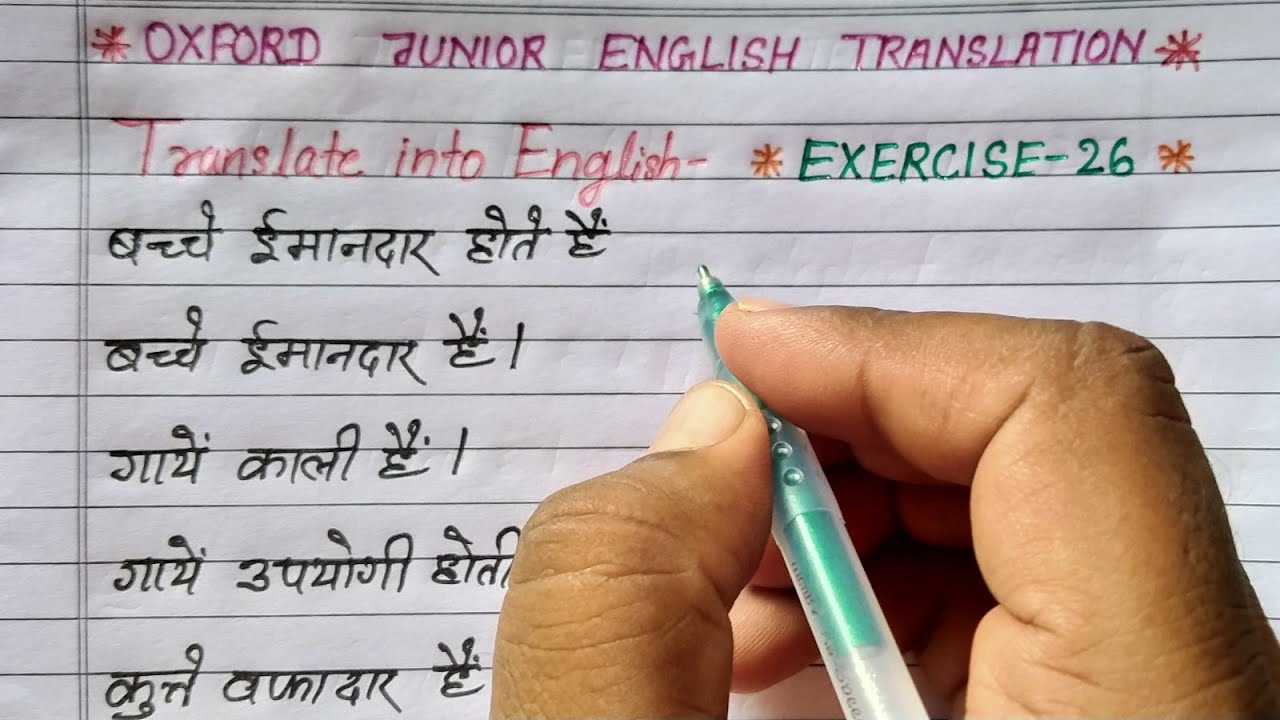 * OXFORD JUNIOR ENGLISH TRANSLATION *
Translate into English- * EXERCISE-26 *
बच्चे ईमानदार होते हैं
बच्चे ईमानदार हैं।
गायें काली हैं।
गायें उपयोगी होती
कुत्ते वफादार हैं